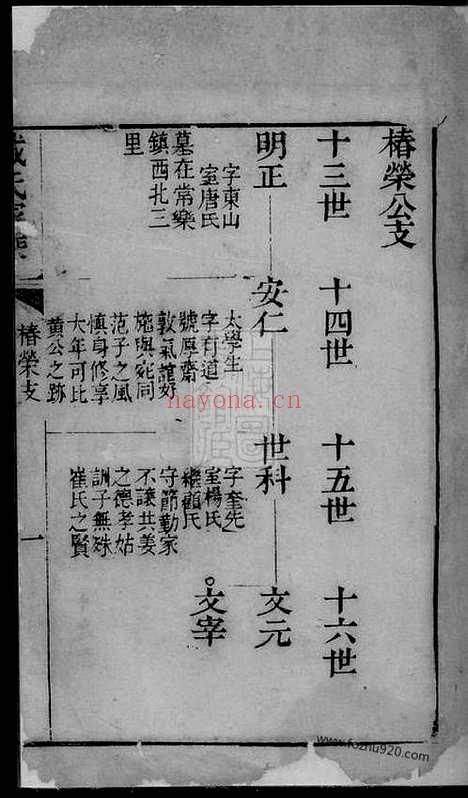 椿榮公支
十三世
十四世
十五世
十六世
明正
安仁
世科
文元
字東山
室唐氏
墓在常樂
鎮西北三
里
太學生
字有道
號厚齋
敦氣誼好
施與宛同
范子之風
慎身修享
大年可比
黃公之跡
字奎先
室楊氏
繼顧氏
守節勤家
不讓共姜
之德孝姑
訓子無殊
崔氏之賢
文宰
椿榮支
一
hayona.cn
www.fozhu920.com